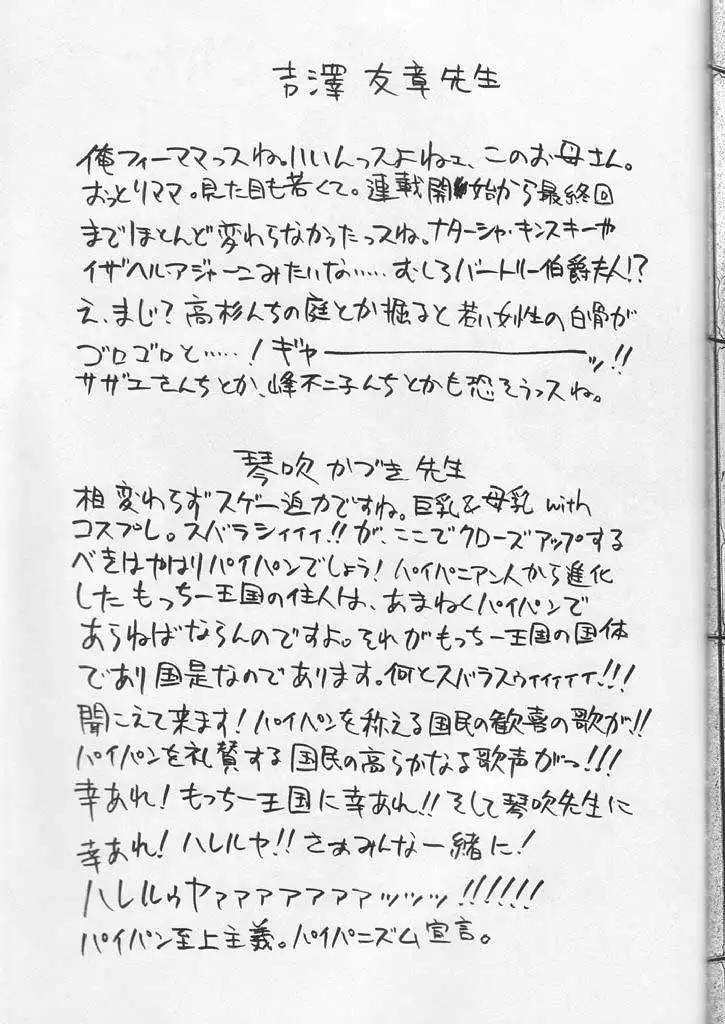 吉澤友章先生
俺フィーママっスね。いいんっスよねェ、このお母さん。
おっとりママ。見た目も若くて。連載開始から最終回
までほとんど変わらなかったっスね。ナターシャ・キンスキーや
イザベル・アジャーニみたいな……むしろバートリー伯爵夫人!?
え、まじ?高杉んちの庭とか掘ると若い女性の白骨が
ゴロゴロと……!ギャーーーーーーーッ!!
サザエさんちとか、峰不二子んちとかも恐そうっスね。
琴吹かづき先生
相変わらずスゲー迫力ですね。巨乳&母乳with
コスプレ。スバラシィィィ!!が、ここでクローズアップする
べきはやはりパイパンでしょう!パイパニアン人から進化
したもっちー王国の住人は、あまねくパイパンで
あらねばならんのですよ。それがもっちー王国の国体
であり国是なのであります。何とスバラスゥィィィィィ!!!
聞こえて来ます!パイパンを称える国民の歓喜の歌が!!
パイパンを礼賛する国民の高らかなる歌声がっ!!!
幸あれ!もっちー王国に幸あれ!!そして琴吹先生に
幸あれ!ハレルヤ!!さぁみんな一緒に!
ハレルゥヤァァァァァァァッッッ!!!!!!
パイパン至上主義。パイパニズム宣言。